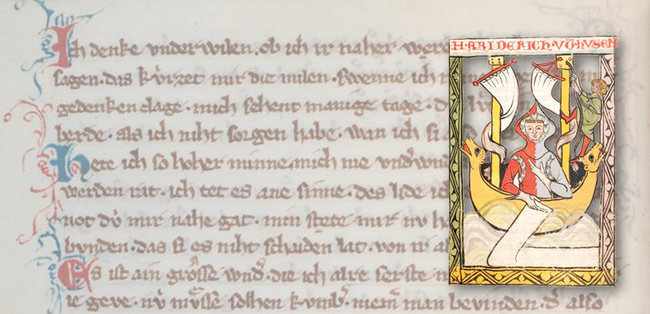 H. FRIDERICH V. HVSEN
Ich denke vnder wilen. ob ich ir naher were
sagen. das kúrzet mir die milen. Swenne ich
gedenken clage. mich sehent manige tage.
berde. als ich niht sorgen habe. wan ich si
Hete ich so hoher minne. mich nie
werden rat. ich tet es ane sinne. des lide
not dv́ mir nahe gat. min stete mir nv
bvnden. das si es niht schaiden lat. von ir
Es ist ain grosse die ich alre serste
ie mv̊sse solhen kvmb'. niem' man bevinden. d' also